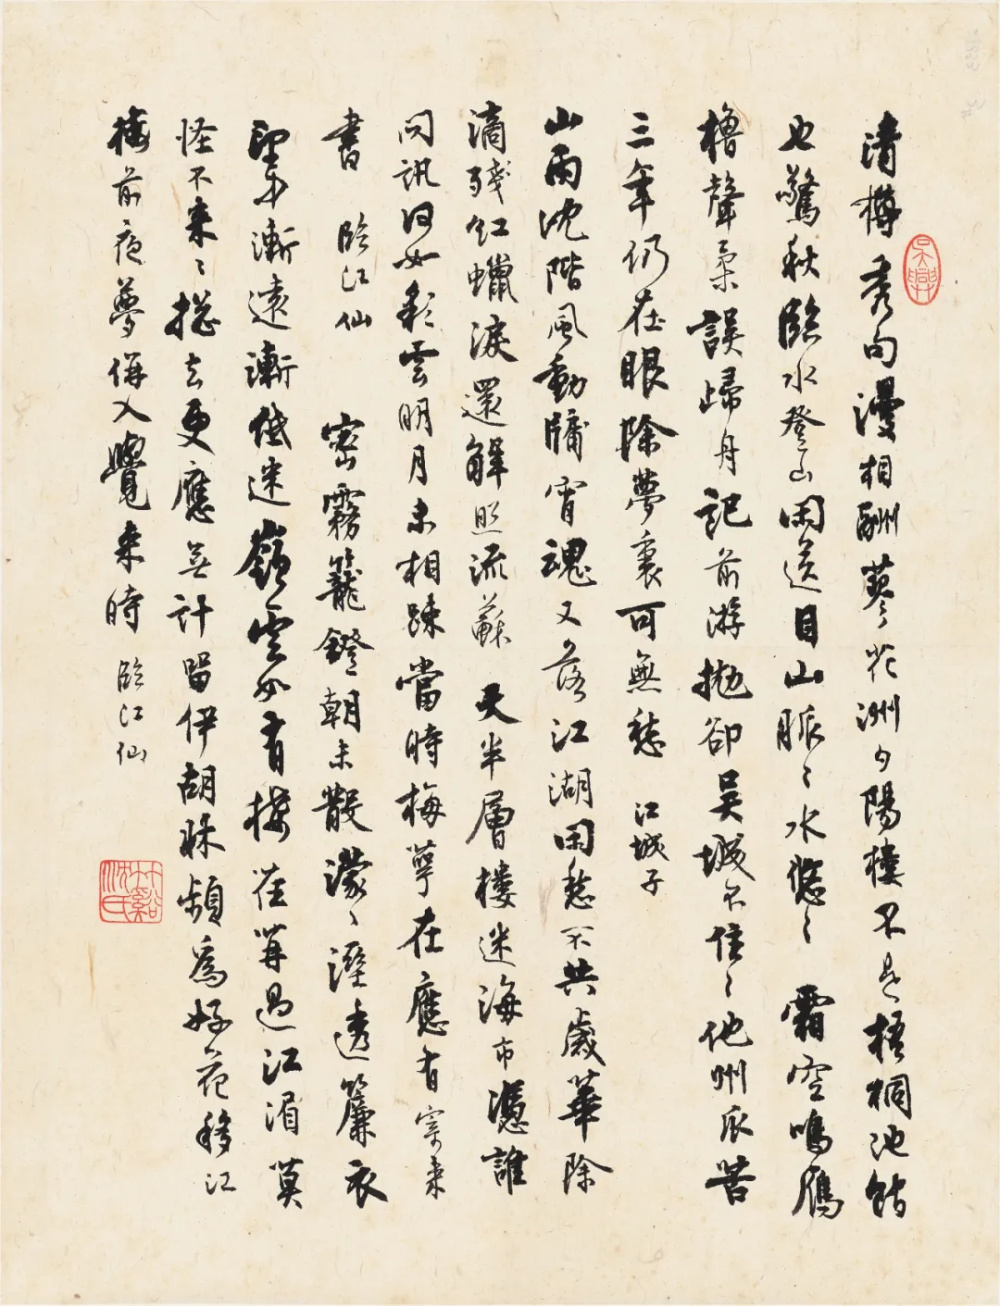 清樽秀句漫相酬蓼花洲夕陽樓不是梧桐池館
也驚秋臨水登山閑送目山脈〻水悠〻霜空鳴雁
櫓聲柔誤歸舟記前游拋卻吳城不住〻他州辰苦
三年仍在眼除夢裏可無愁 江城子
山雨沈階風動牖宵魂又落江湖閑愁不共歲華除
滴殘紅蠟淚還解照流蘇 天半層樓迷海市憑誰
問訊何如彩雲明月未相疎當時梅萼在應有寄來
書 臨江仙 密霧籠鐙朝未散濛〻溼透簾衣
望中漸遠漸低迷嶺雲如有樓從算過江湄莫
怪不來〻總去更應無計留伊胡牀頻為好花移江
樓前夜夢併入覺來時 臨江仙
吳興
竹谿沈氏